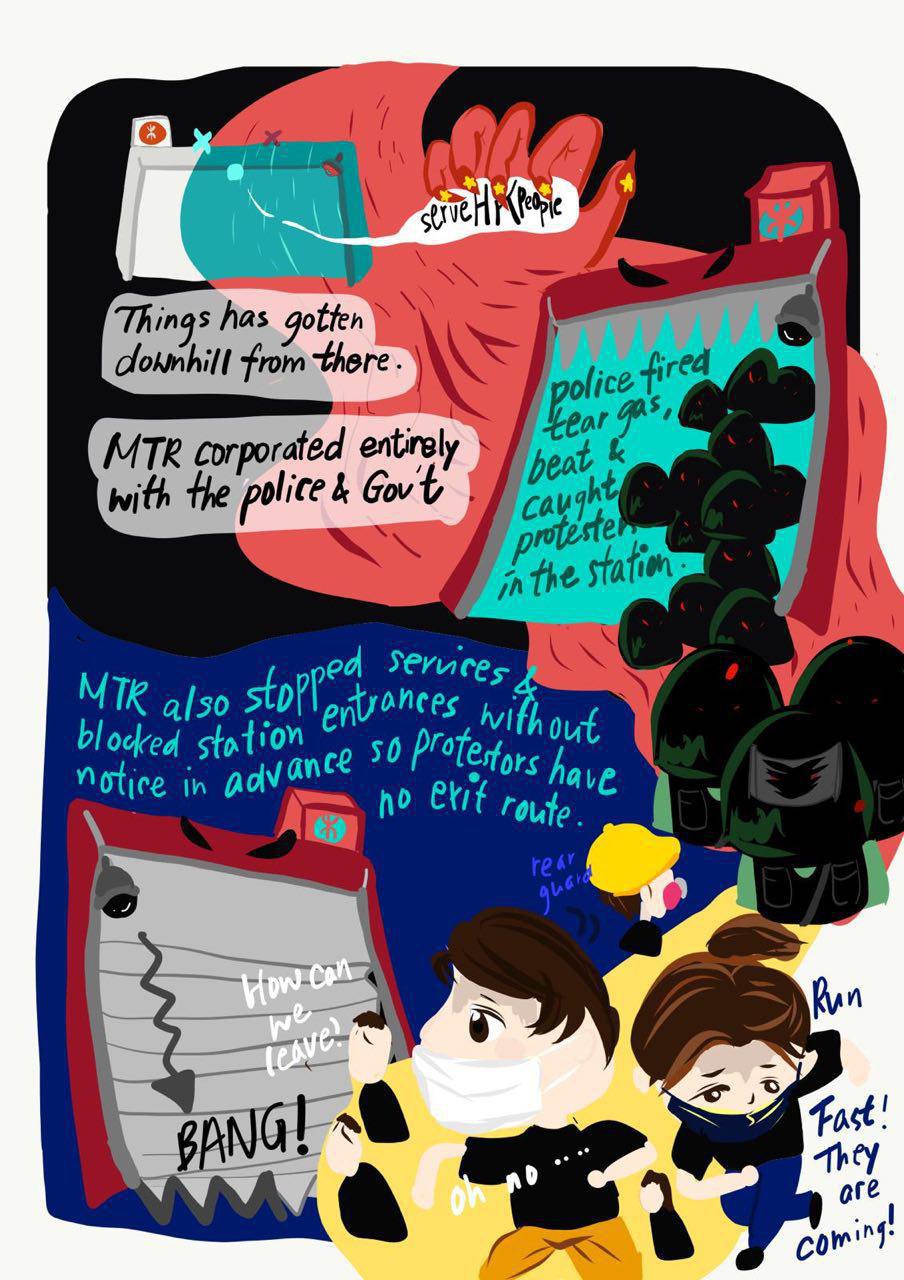 serve HK People
Things has gotten
downhill from there.
MTR corporated entirely
with the police & Gov't
police fired
tear gas,
beat &
caught
protester
in the station.
MTR also stopped services &
blocked station entrances without
notice in advance so protestors have
no exit route.
rear
guard
How can
we
leave?
BANG!
oh no ....
Run
Fast!
They
are
coming!